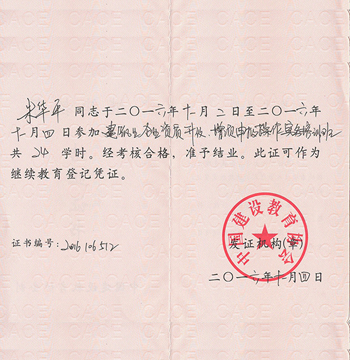 朱华平 同志于二〇一六年十月二日至二〇一六年
十月四日参加建筑业企业资质升级、增项申报操作实务培训班
共 24 学时。经考核合格，准予结业。此证可作为
继续教育登记凭证。
中国建设教育协会
证书编号: 2016106512
发证机构(章)
二〇一六年十月四日